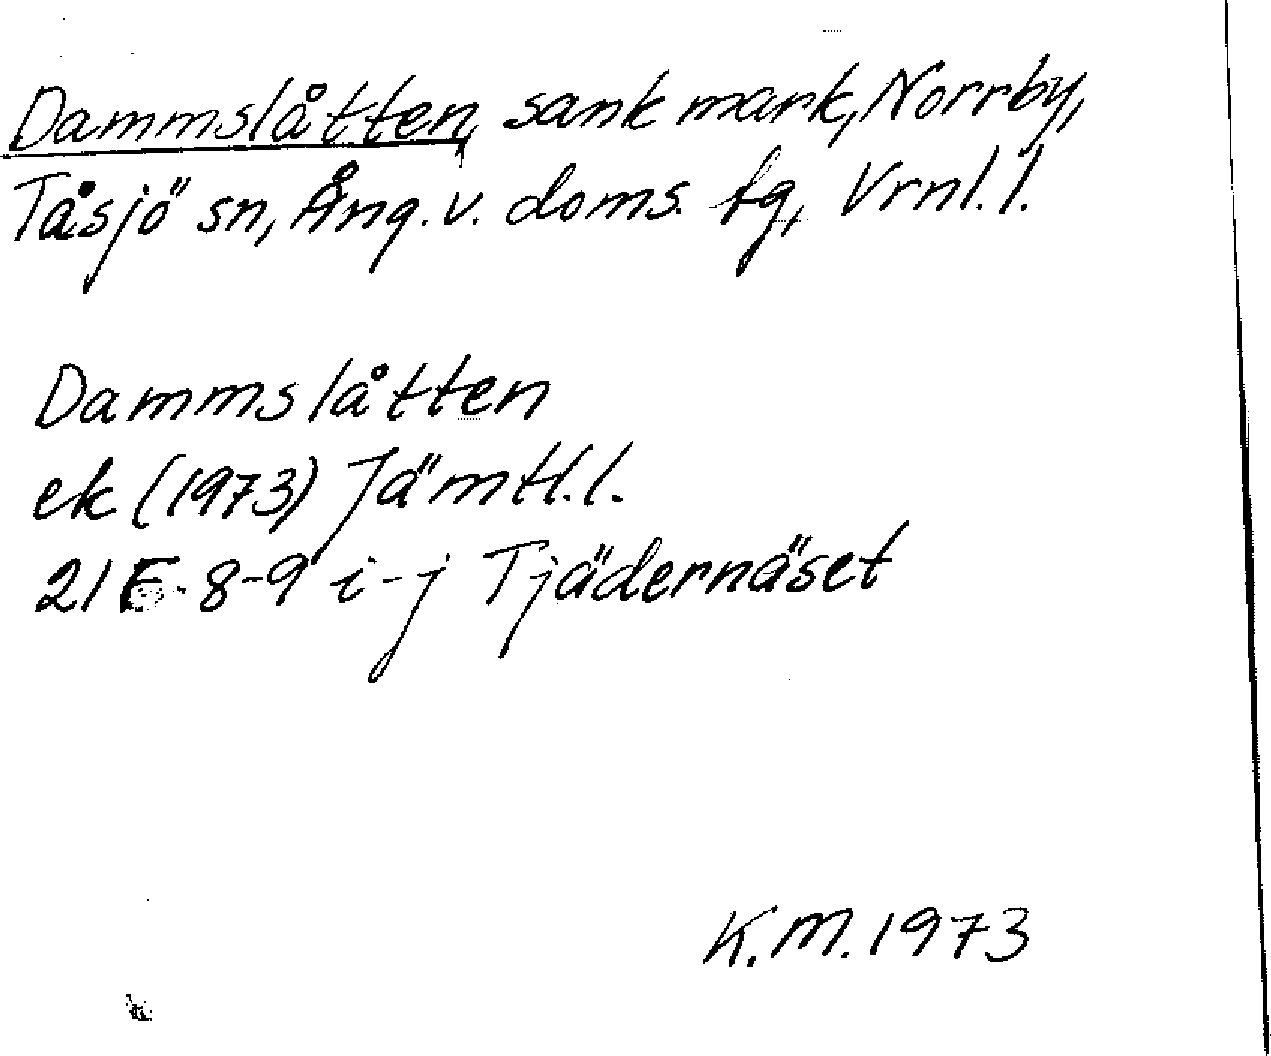 Dammslåtten, sank mark, Norrby,
Tåsjö sn, Ång. v. doms. fg, Vrnl. l.
Dammslåtten
ek (1973) Jämtl. l.
21 F. 8-9 i-j Tjädernäset
K. M. 1973